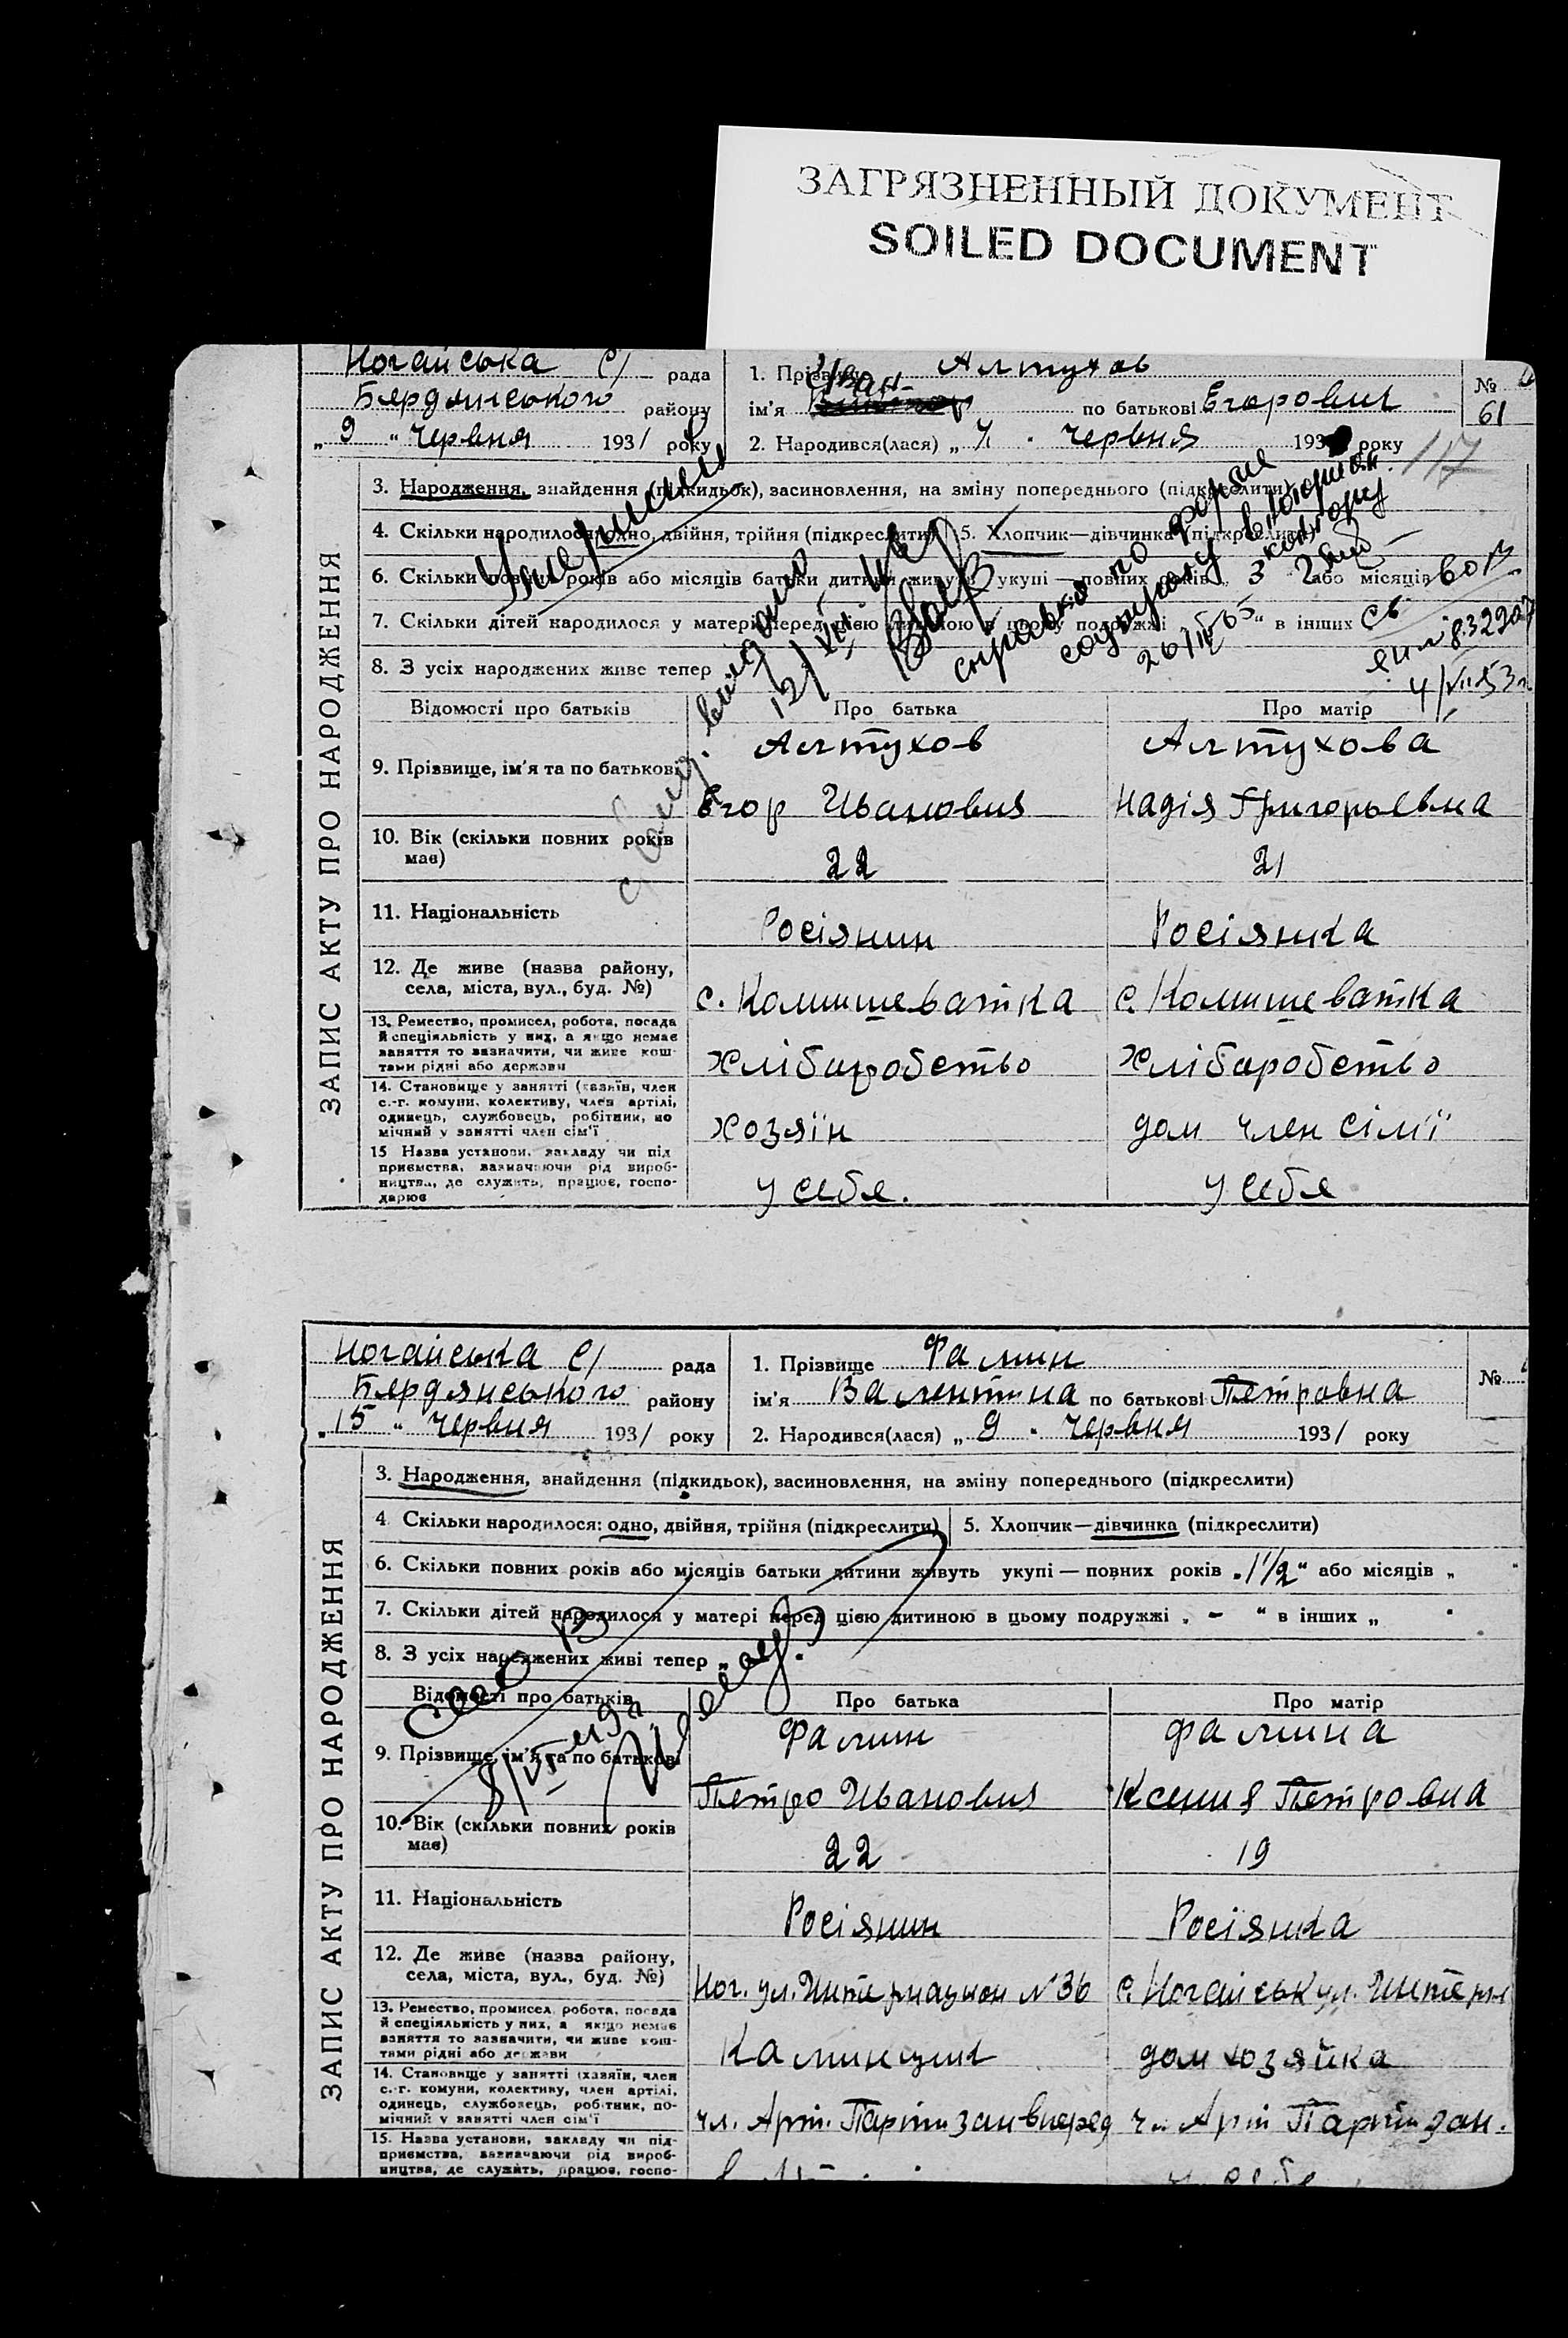 ЗАГРЯЗНЕННЫЙ ДОКУМЕНТ
SOILED DOCUMENT
Ногайська С/ рада
Бердянського району
„ 9 “ Червня 1931 року
1. Прізвище Алтухов
ім'я Иван по батькові Егорович
2. Народився(лася) „ 7 “ Червня 193 року
№
61
117
ЗАПИС АКТУ ПРО НАРОДЖЕННЯ
3. Народження, знайдення (підкидьок), засиновлення, на зміну попереднього (підкреслити)
4. Скільки народилося: одно, двійня, трійня (підкреслити) 5. Хлопчик—дівчинка (підкреслити)
6. Скільки повних років або місяців батьки дитини живуть укупі — повних років „ 3 “ або місяців
7. Скільки дітей народилося у матері перед цією дитиною в цьому подружжі „ “ в інших
8. З усіх народжених живе тепер
справка по форме
26/II 65
832207
4/VII 53
Відомості про батьків Про батька Про матір
9. Прізвище, ім'я та по батькові
Алтухов Алтухова
Егор Иванович Надія Григорьевна
10. Вік (скільки повних років має)
22 21
11. Національність
Росіянин Росіянка
12. Де живе (назва району, села, міста, вул., буд. №)
с. Комишеватка с. Комишеватка
13. Ремество, промисел, робота, посада й спеціяльність у них, а якщо немає заняття то зазначити, чи живе коштами рідні або держави
Хліборобство Хліборобство
14. Становище у занятті (хазяїн, член с.-г. комуни, колективу, член артілі, одинець, службовець, робітник, помічний у занятті член сім'ї
хозяїн дом член сімї
15 Назва установи, закладу чи підприємства, вазначаючи рід виробництва, де служить, працює, господарює
у себя. у себя
Ногайська С/ рада
Бердянського району
„ 15 “ Червня 1931 року
1. Прізвище Фалин
ім'я Валентина по батькові Петровна
2. Народився(лася) „ 9 “ Червня 1931 року
№
ЗАПИС АКТУ ПРО НАРОДЖЕННЯ
3. Народження, знайдення (підкидьок), засиновлення, на зміну попереднього (підкреслити)
4 Скільки народилося: одно, двійня, трійня (підкреслити) 5. Хлопчик—дівчинка (підкреслити)
6. Скільки повних років або місяців батьки дитини живуть укупі — повних років „ 1 1/2 “ або місяців „ “
7. Скільки дітей народилося у матері перед цією дитиною в цьому подружжі „ – “ в інших „ “
8. З усіх народжених живі тепер „
Відомості про батьків Про батька Про матір
9. Прізвище, ім'я та по батькові
Фалин Фалина
Петро Иванович Ксения Петровна
10. Вік (скільки повних років має)
22 19
11. Національність
Росіянин Росіянка
12. Де живе (назва району, села, міста, вул., буд. №)
Ног. ул. Интернацион № 36 с. Ногайськ ул. Интерн
13. Ремество, промисел, робота, посада й спеціяльність у них, а якщо немає заняття то зазначити, чи живе коштами рідні або держави
Каминщик дом хозяйка
14. Становище у занятті (хазяїн, член с.-г. комуни, колективу, член артілі, одинець, службовець, робітник, помічний у занятті член сім'ї
чл. Арт. Партизан вперед чл Арт Партизан.
15. Назва установи, закладу чи підприємства, вазначаючи рід виробництва, де служить, працює, госпо-